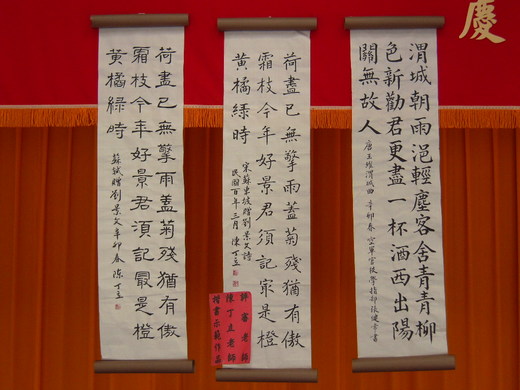 慶
渭城朝雨浥輕塵客舍青青柳
色新勸君更盡一杯酒西出陽
關無故人
唐王維渭城曲 辛卯春 空軍官校學指部張健書
荷盡已無擎雨蓋菊殘猶有傲
霜枝今年好景君須記冣是橙
黃橘綠時
宋蘇東坡贈劉景文詩
民國百年三月 陳丁立
評審老師
陳丁立老師
楷書示範作品
荷盡已無擎雨蓋菊殘猶有傲
霜枝今年好景君須記最是橙
黃橘綠時
蘇軾贈劉景文辛卯春 陳丁立